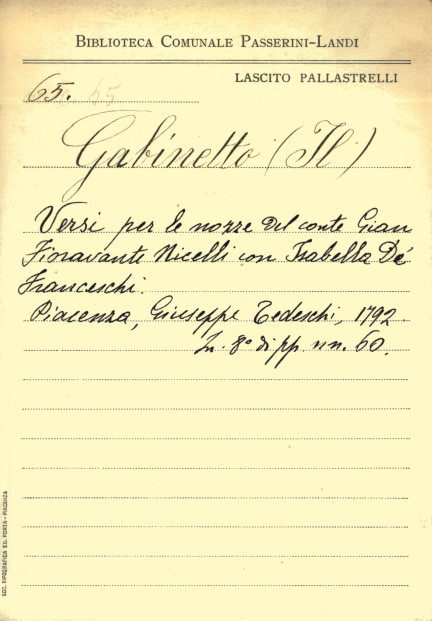 BIBLIOTECA COMUNALE PASSERINI-LANDI
LASCITO PALLASTRELLI
65. 65
Gabinetto (Il)
Versi per le nozze del conte Gian
Fioravante Nicelli con Isabella De'
Franceschi.
Piacenza, Giuseppe Tedeschi, 1792.
In-8° di pp. nn. 60.
SOC. TIPOGRAFICA ED. PORTA - PIACENZA